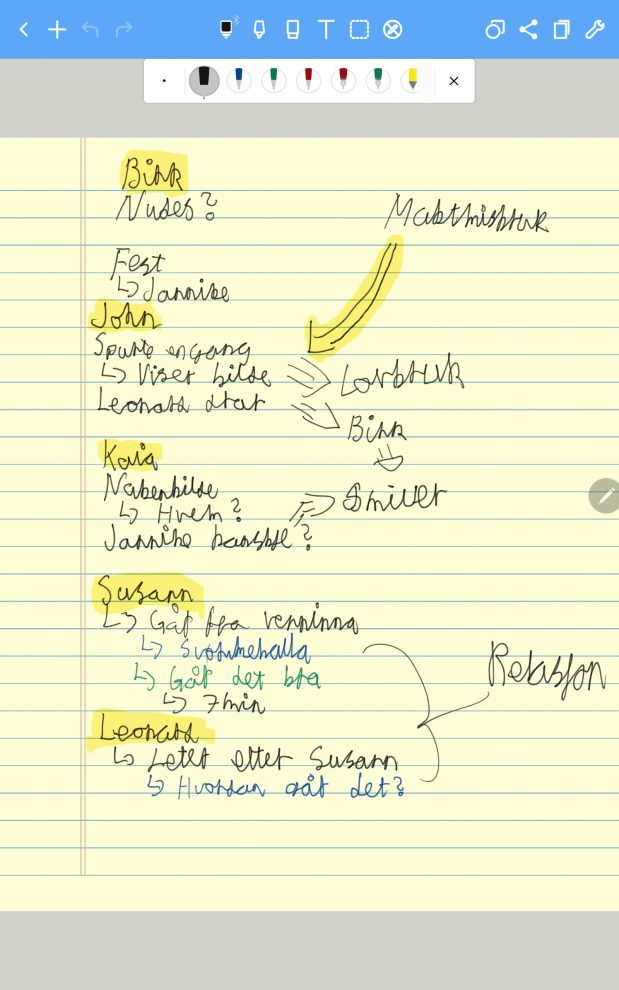 Birk
Nudes?
Maktmisbruk
Fest
↳ Jannike
John
Spurte engang
↳ Viser bilde
Lovbruk
Leonard drar
Birk
Kaia
Nakenbilde
Smiler
↳ Hvem?
Jannike kanskje?
Susann
↳ Går fra venninna
↳ Svømmehalla
↳ Går det bra
Relasjon
↳ 7 min
Leonard
↳ Leter etter Susann
↳ Hvordan går det?